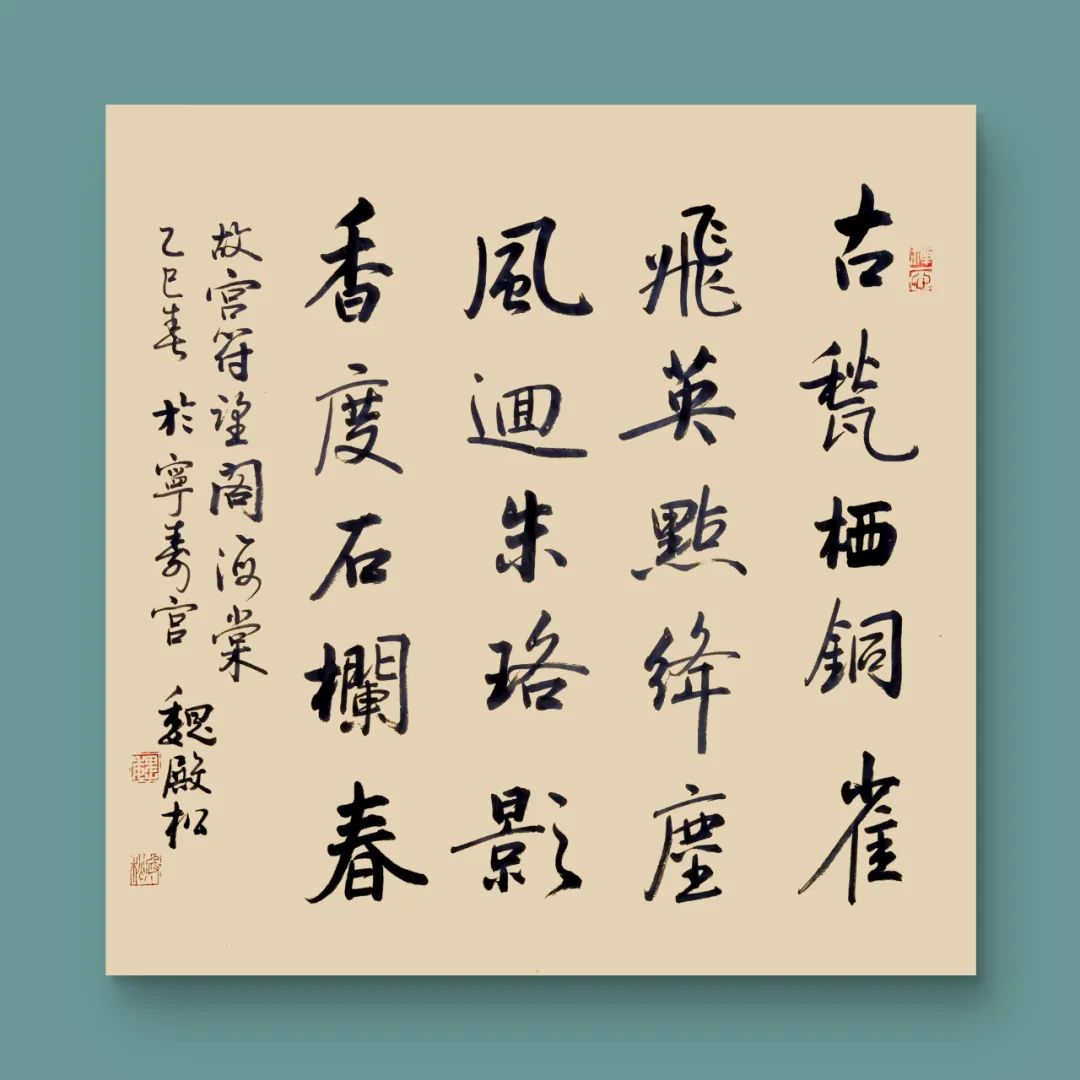 古甃栖銅雀
飛英點絳塵
風迴朱珞影
香度石欄春
故宮符望阁海棠
乙巳春於寧寿宮 魏殿松